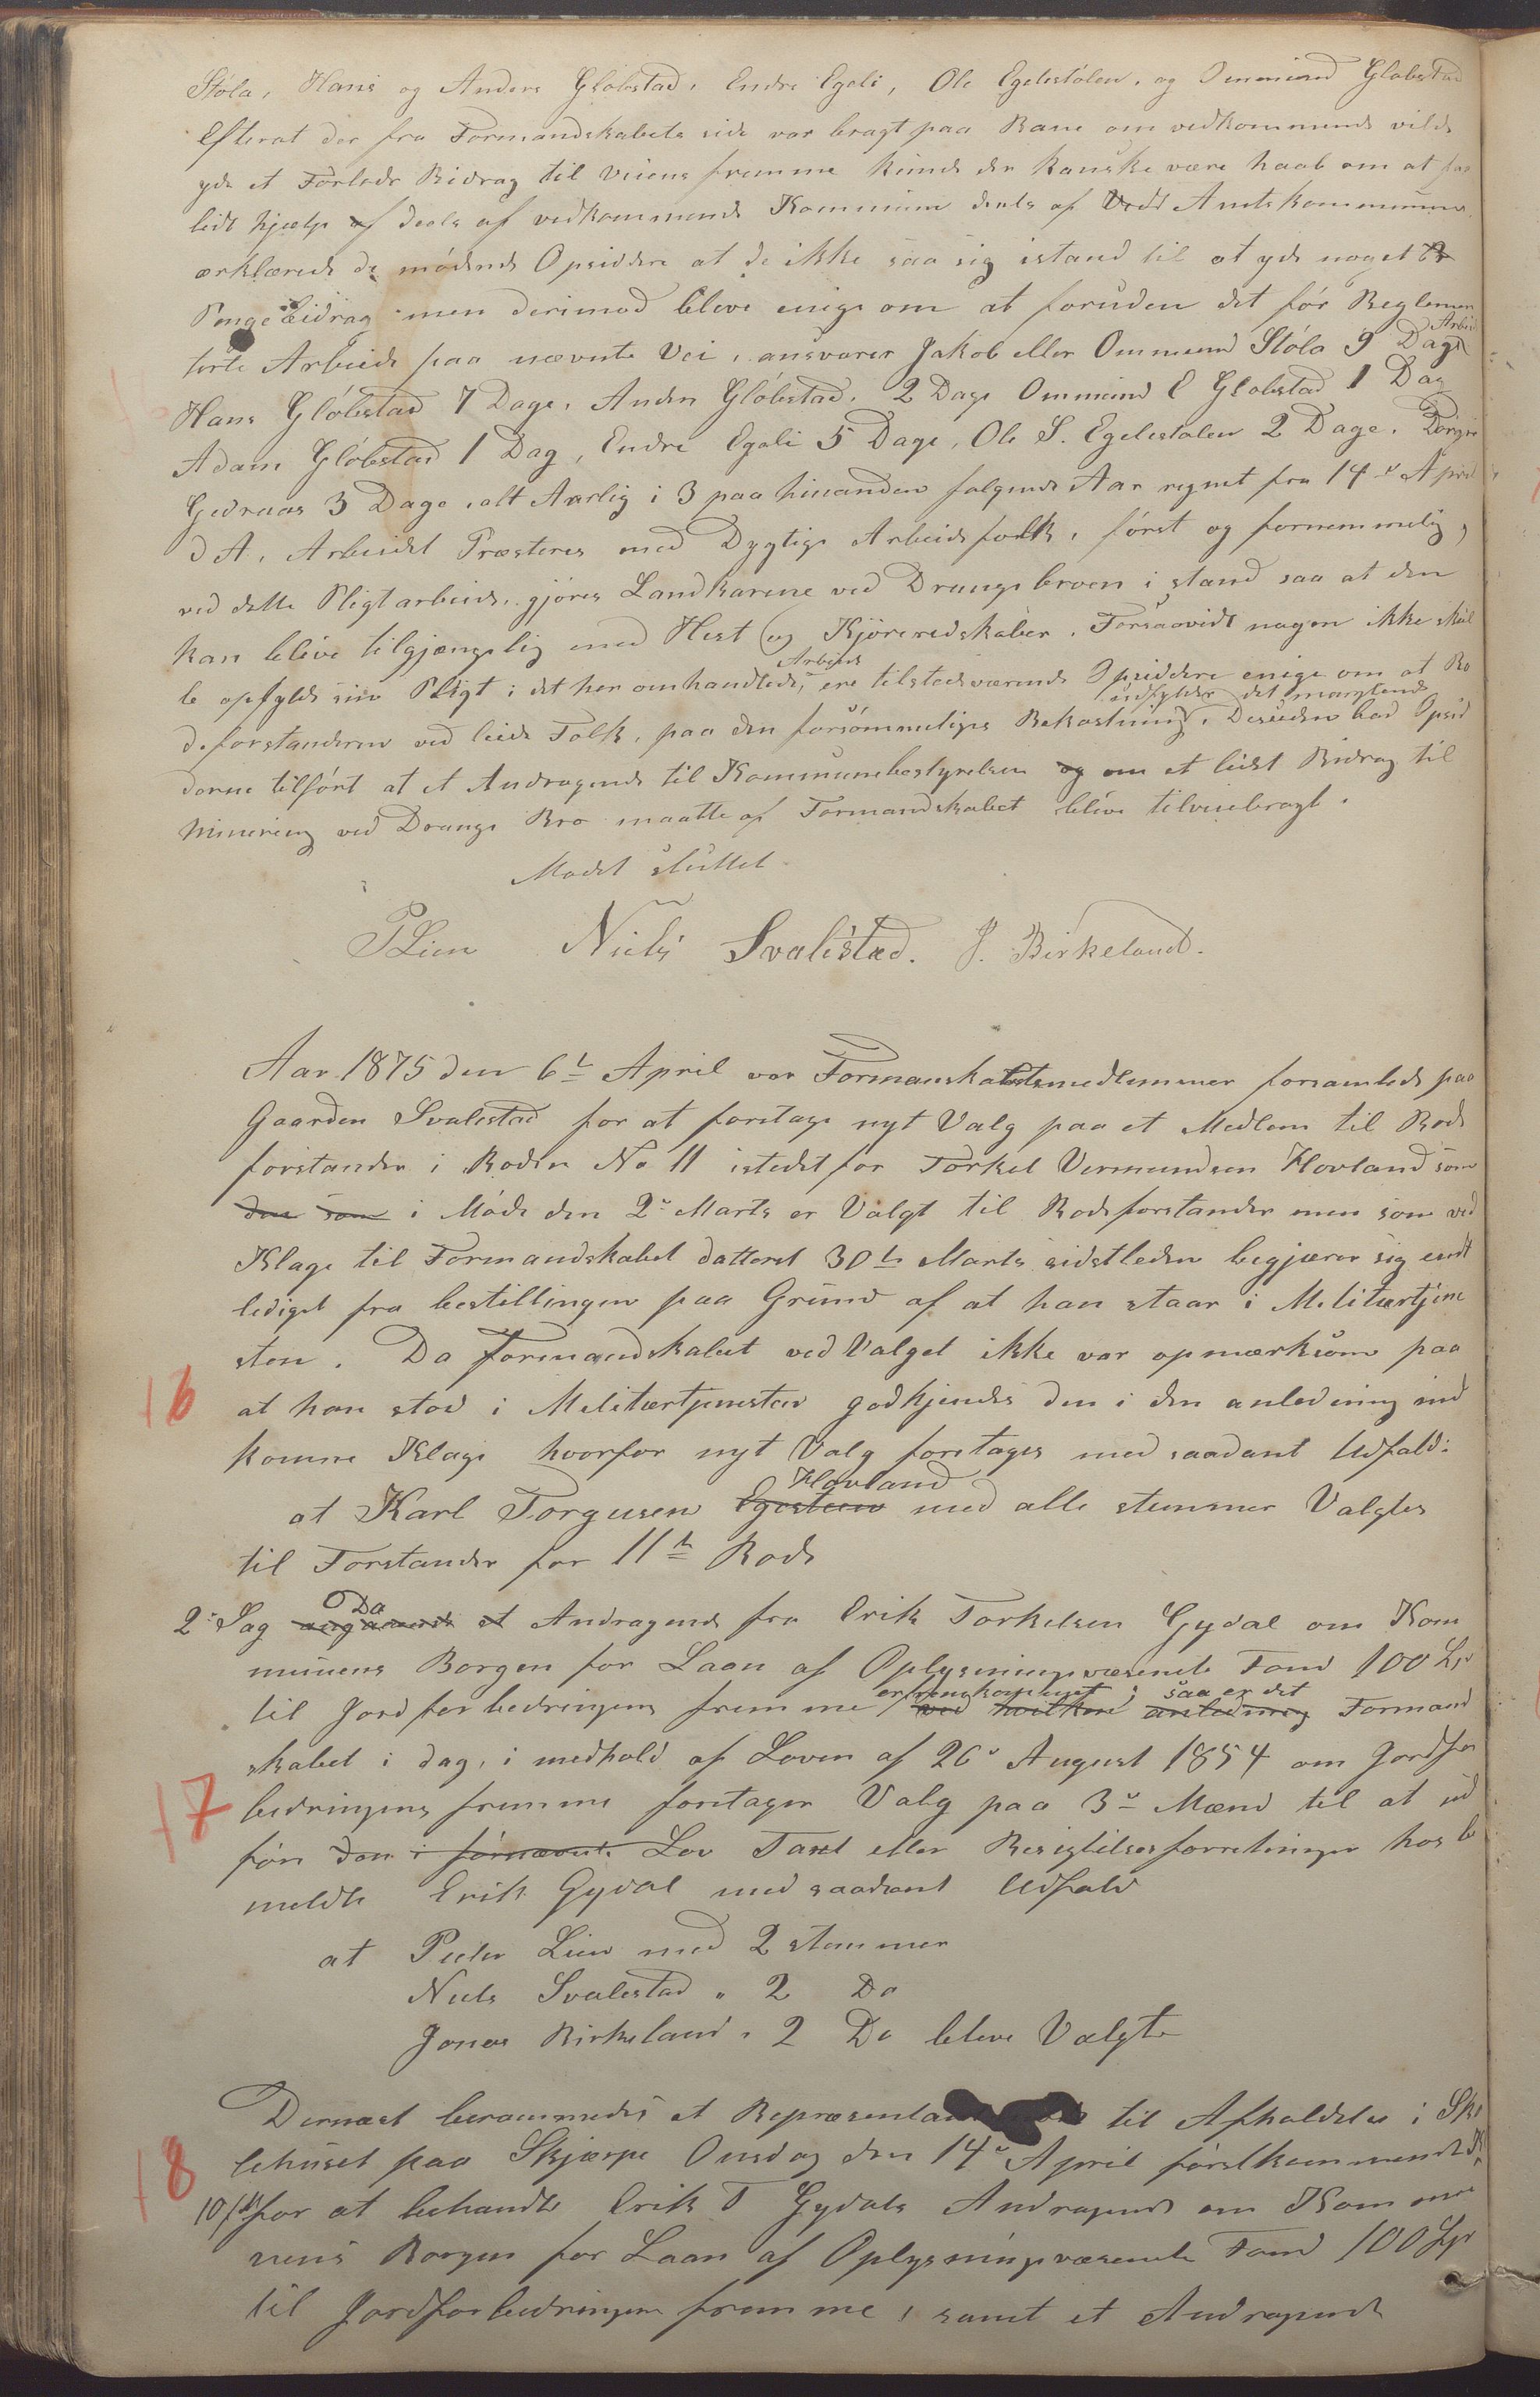 Stóla, Hans og Anders Glóbstad, Endre Egeli, Ole Egelistólen, og Ommund Globstad
Efterat der fra Formandskabets side var bragt paa Bane om vedkommende vilde
yde et Forlods Bidrag til Veiens fremme kunde der kanske være haab om at faa
lidt hjælp af deels af vedkommende Kommune deels af Amtskommunen
erklærede de mødende Opsiddere at de ikke saa sig istand til at yde noget
Penge Bidrag men derimod bleve enige om at foruden det før Reglemen
terte Arbeide paa nævnte Vei, ansvarer Jakob eller Ommund Stóla 9 Dage Arbeid
Hans Glóbstad 7 Dage, Anders Glóbstad, 2 Dage Ommund E Globstad 1 Dag
Adam Glóbstad 1 Dag, Endre Egeli 5 Dage, Ole S. Egelistolen 2 Dage,
Gedraas 3 Dage, alt Aarlig i 3 paa hinanden følgende Aar regnet fra 14de April
d A, Arbeidet Præsteres med Dygtige Arbeidsfolk, først og fornemmelig,
ved dette Pligtarbeide, gjøres Landkarene ved Drangsbroen i stand saa at den
kan blive tilgjængelig med Hest og Kjøreredskaber. Forsaavidt nogen ikke skul
le opfylde sin Pligt i det her omhandlede, Arbeide ere tilstedeværende Opsiddere enige om at Ro
deforstanderen ved leiede Folk, paa den forsømmeliges Bekostning, udfylder det manglende Desuden bad Opsid
derne tilført at et Andragende til Kommunebestyrelsen og om et lidet Bidrag til
Minering ved Drangs Bro maatte af Formandskabet blive tilveiebragt.
Mødet sluttet
PLien Niels Svalestad. J. Birkeland.
Aar 1875 den 6te April var Formanskabetsmedlemmer forsamlede paa
Gaarden Svalestad for at foretage nyt Valg paa et Medlem til Rode
forstander i Roden No 11 istedet for Torkel Vermundsen Hovland som
den som i Møde den 2den Marts er Valgt til Rodeforstander men som ved
Klage til Formandskabet datteret 30te Marts sidstleden begjærer sig endt
lediget fra bestillingen paa Grund af at han staar i Militærtjene
sten. Da Formandskabet ved Valget ikke var opmærksom paa
16 at han stod i Militærtjenesten godkjendes den i den anledning ind
komne Klage hvorfor nyt Valg foretages med saadant Udfald:
at Karl Torgersen Egesteen Hovland med alle stemmer Valgtes
til Forstander for 11te Rode
2: Sag angaaende Da et Andragende fra Erik Torkelsen Gydal om Kom
munens Borgen for Laan af Oplysningsvæsenets Fond 100 Spd
til Jordforbedringens fremme er fremkommet, saa er det ved hvilken anledning Formand
skabet i dag, i medhold af Loven af 26de August 1854 om Jordfor
17 bedringens fremme foretager Valg paa 3de Mænd til at ud
føre den i førnævnte Lov Taxt eller Besigtilsesforretninger hos be
meldte Erik Gydal med saadant Udfald
at Peder Lien med 2 stemmer
Niels Svalestad " 2 Do
Jonas Birkeland " 2 Do bleve Valgte
Dernæst berammedes et til Afholdelse i Sko
18 lehuset paa Skjærpe Onsdag den 14de April førstkommende Kl
10 for at behandle Erik T Gydals Andragende om Kommu
nens Borgen for Laan af Oplysningsvæsenets Fond 100 Spd
til Jordforbedringens fremme, samt et Andragende